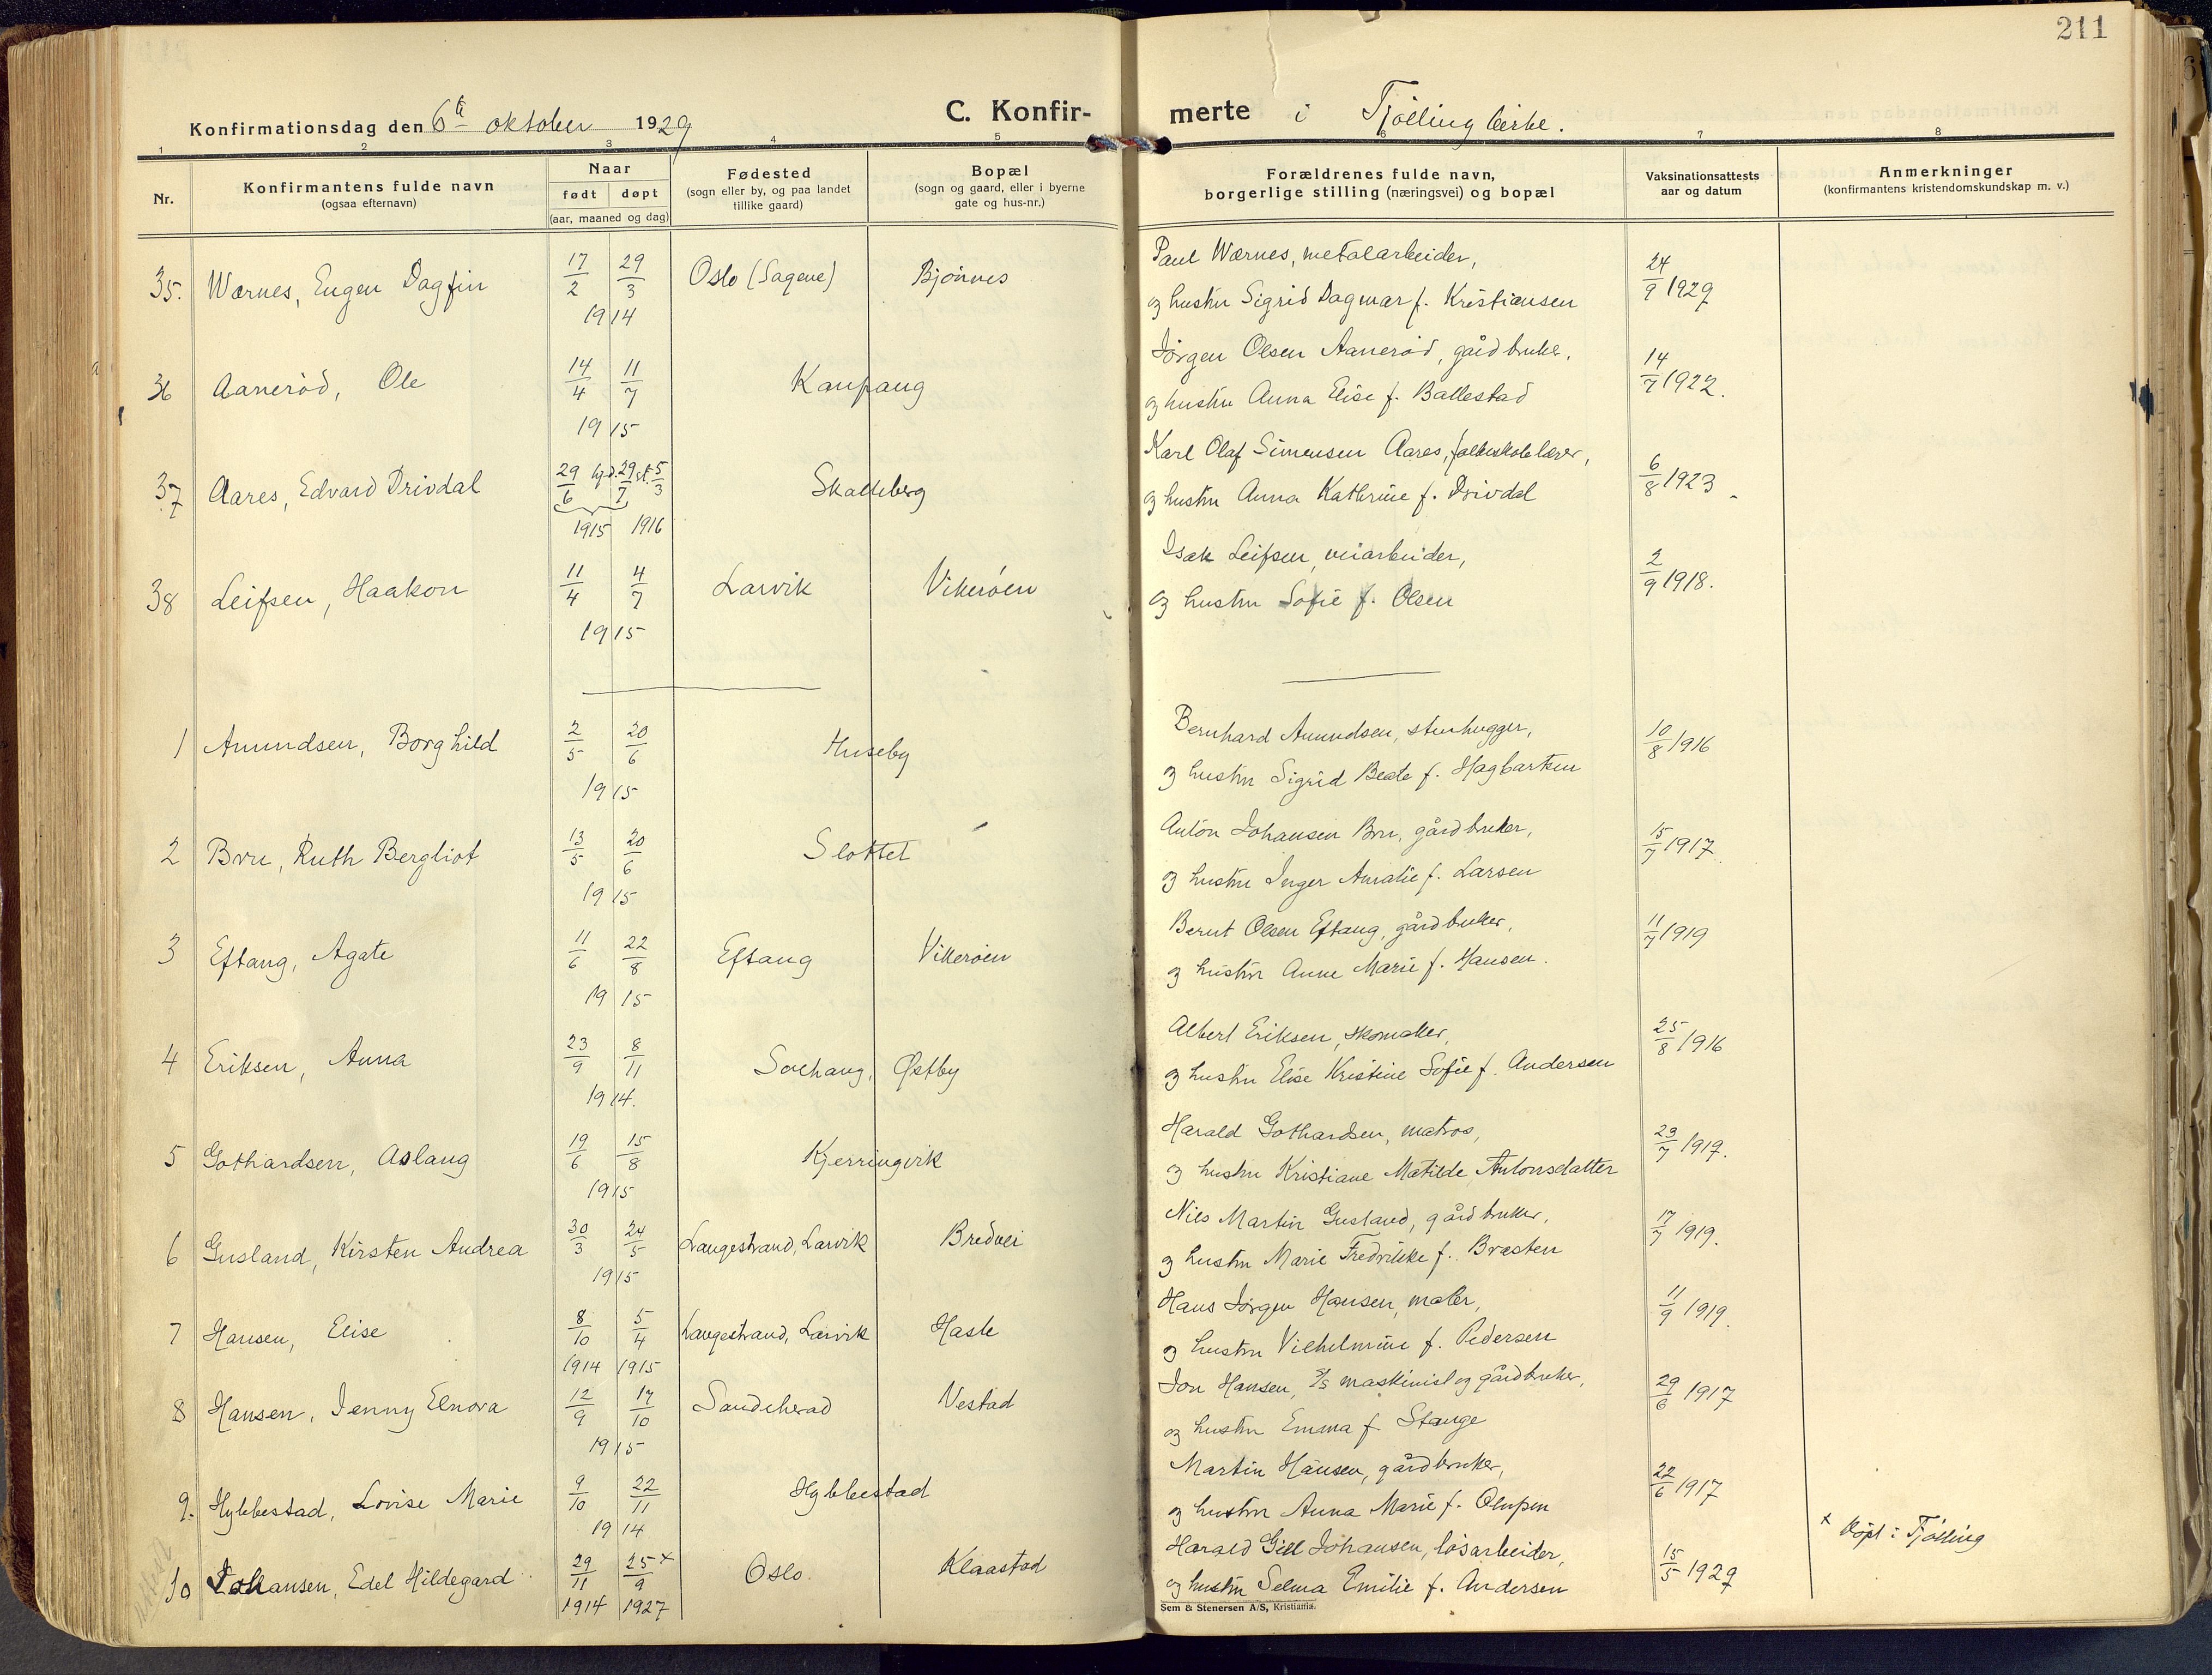 211
Konfirmationsdag den 6te oktober 1929
C. Konfirmerte i Tjølling kirke.
1 2 3 4 5 6 7 8
Nr.
Konfirmantens fulde navn
(ogsaa efternavn)
Naar
født døpt
(aar, maaned og dag)
Fødested
(sogn eller by, og paa landet
tillike gaard)
Bopæl
(sogn og gaard, eller i byerne
gate og hus-nr.)
Forældrenes fulde navn,
borgerlige stilling (næringsvei) og bopæl
Vaksinationsattests
aar og datum
Anmerkninger
(konfirmantens kristendomskundskap m. v.)
35. Wærnes, Eugen Dagfin 17/2 29/3 1914 Oslo (Sagene) Bjønnes
Paul Wærnes, metalarbeider,
og hustru Sigrid Dagmar f. Kristiansen 24/9 1929
36 Aanerød, Ole 14/4 11/7 1915 Kaupang
Jørgen Olsen Aanerød, gårdbruker,
og hustru Anna Elise f. Ballestad 14/7 1922.
37 Aares, Edvard Drivdal 29/6 hjd. 29/7 st. 5/3 1915 1916 Skalleberg
Karl Olaf Simensen Aares, folkeskolelærer,
og hustru Anna Kathrine f. Drivdal 6/8 1923
38 Leifsen, Haakon 11/4 4/7 1915 Larvik Vikerøen
Isak Leifsen, veiarbeider,
og hustru Sofie f. Olsen 2/9 1918.
1 Amundsen, Borghild 2/5 20/6 1915 Huseby
Bernhard Amundsen, stenhugger,
og hustru Sigrid Beate f. Hagbartsen 10/8 1916
2 Bru, Ruth Bergliot 13/5 20/6 1915 Slottet
Anton Johansen Bru, gårdbruker,
og hustru Inger Amalie f. Larsen 15/7 1917.
3 Eftang, Agate 11/6 22/8 1915 Eftang Vikerøen
Bernt Olsen Eftang, gårdbruker,
og hustru Anne Marie f. Hansen. 11/7 1919
4 Eriksen, Anna 23/9 8/11 1914. Solhaug, Østby
Albert Eriksen, skomaker,
og hustru Elise Kristine Sofie f. Andersen 25/8 1916
5 Gothardsen, Aslaug 19/6 15/8 1915 Kjerringvik
Harald Gothardsen, matros,
og hustru Kristiane Matilde Antonsdatter 23/7 1917.
6 Gusland, Kirsten Andrea 30/3 24/5 1915 Langestrand, Larvik Bredvei
Nils Martin Gusland, gårdbruker,
og hustru Marie Fredrikke f. Bræsten 17/7 1919.
7 Hansen, Elise 8/10 5/4 1914 1915 Langestrand, Larvik Hasle
Hans Jørgen Hansen, maler,
og hustru Vilhelmine f. Pedersen 11/9 1919.
8 Hansen, Jenny Elnora 12/9 17/10 1915 Sandeherad Vestad
Jon Hansen, S/S maskinist og gårdbruker,
og hustru Emma f. Stange 29/6 1917
9. Hybbestad, Lovise Marie 9/10 22/11 1914 Hybbestad
Martin Hansen, gårdbruker,
og hustru Anna Marie f. Olufsen 22/6 1917
10 Johansen, Edel Hildegard 29/11 25/9 x 1914 1927 Oslo. Klaastad
Harald Gill Johansen, løsarbeider,
og hustru Selma Emilie f. Andersen 15/5 1929
x Døpt i Tjølling
Sem & Stenersen A/S, Kristiania.